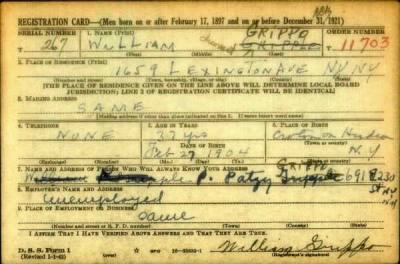 REGISTRATION CARD—(Men born on or after February 17, 1897 and on or before December 31, 1921)
SERIAL NUMBER 1. NAME (Print) ORDER NUMBER
GRIPPO
T 267 WILLIAM 11703
(First) (Middle) (Last)
2. PLACE OF RESIDENCE (Print)
1659 LEXINGTON AVE NY NY
(Number and street) (Town, township, village, or city) (County) (State)
[THE PLACE OF RESIDENCE GIVEN ON THE LINE ABOVE WILL DETERMINE LOCAL BOARD
JURISDICTION; LINE 2 OF REGISTRATION CERTIFICATE WILL BE IDENTICAL]
3. MAILING ADDRESS
SAME
[Mailing address if other than place indicated on line 2. If same insert word same]
4. TELEPHONE 5. AGE IN YEARS 6. PLACE OF BIRTH
NONE 37 yrs Croton on Hudson
DATE OF BIRTH
Feb 27 1904 N.Y
(Town or county)
(Exchange) (Number) (Mo.) (Day) (Yr.) (State or country)
7. NAME AND ADDRESS OF PERSON WHO WILL ALWAYS KNOW YOUR ADDRESS
GRIPPO
Patsy 691 E 230
St NY
8. EMPLOYER'S NAME AND ADDRESS
Unemployed
9. PLACE OF EMPLOYMENT OR BUSINESS
Same
(Number and street or R. F. D. number) (Town) (County) (State)
I AFFIRM THAT I HAVE VERIFIED ABOVE ANSWERS AND THAT THEY ARE TRUE.
D. S. S. Form 1
(Revised 1-1-42) (over)
William Grippo
(Registrant's signature)